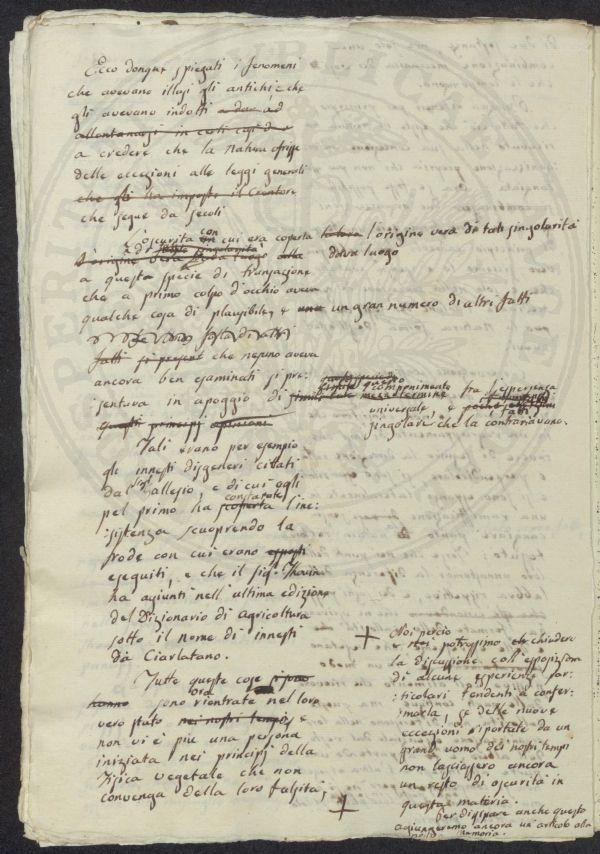 Ecco donque spiegati i fenomeni
che avevano illusi gli antichi e che
gli avevano indotti a dar ad
allontanarsi in certi casi d
a credere che la natura ofrisse
delle eccezioni alle leggi generali
che gli ha imposti il Creatore
che segue da secoli
L'oscurità con cui era coperta l'origine vera di tali singolarità
dava luogo
a questa specie di transazione
che a primo colpo d'occhio aveva
qualche cosa di plausibile, e una un gran numero di altri fatti
fatti si present che nessuno aveva
ancora ben esaminati si pre:
sentava in apoggio di componimento fra l'esperienza
universale, e fatti
singolari che la contrariavano.
questi principj
Tali erano per esempio
gli innesti disgeneri citati
dal Sigr Gallesio, e di cui egli
pel primo ha scoperta constatata l'ine:
sistenza scuoprendo la
frode con cui erano
eseguiti, e che il Sigr Thouin
ha agiunti nell'ultima edizione
del Dizionario di Agricoltura
sotto il nome di innesti
da Ciarlatano.
Tutte queste cose si sono
hanno sono ora rientrate nel loro
vero stato nei nostri tempi, e
non vi è più una persona
iniziata nei principj della
Fisica vegetale che non
convenga della loro falsità;
Noi perciò
potressimo chiudere
la discussione coll'esposizione
di alcune esperienze par:
ticolari tendenti a confer:
marla, se delle nuove
eccezioni riportate da un
grand'uomo dei nostri tempi
non lasciassero ancora
un resto di oscurità in
questa materia.
Per dissipare anche questo
agiungeremo ancora un articolo alla
memoria.